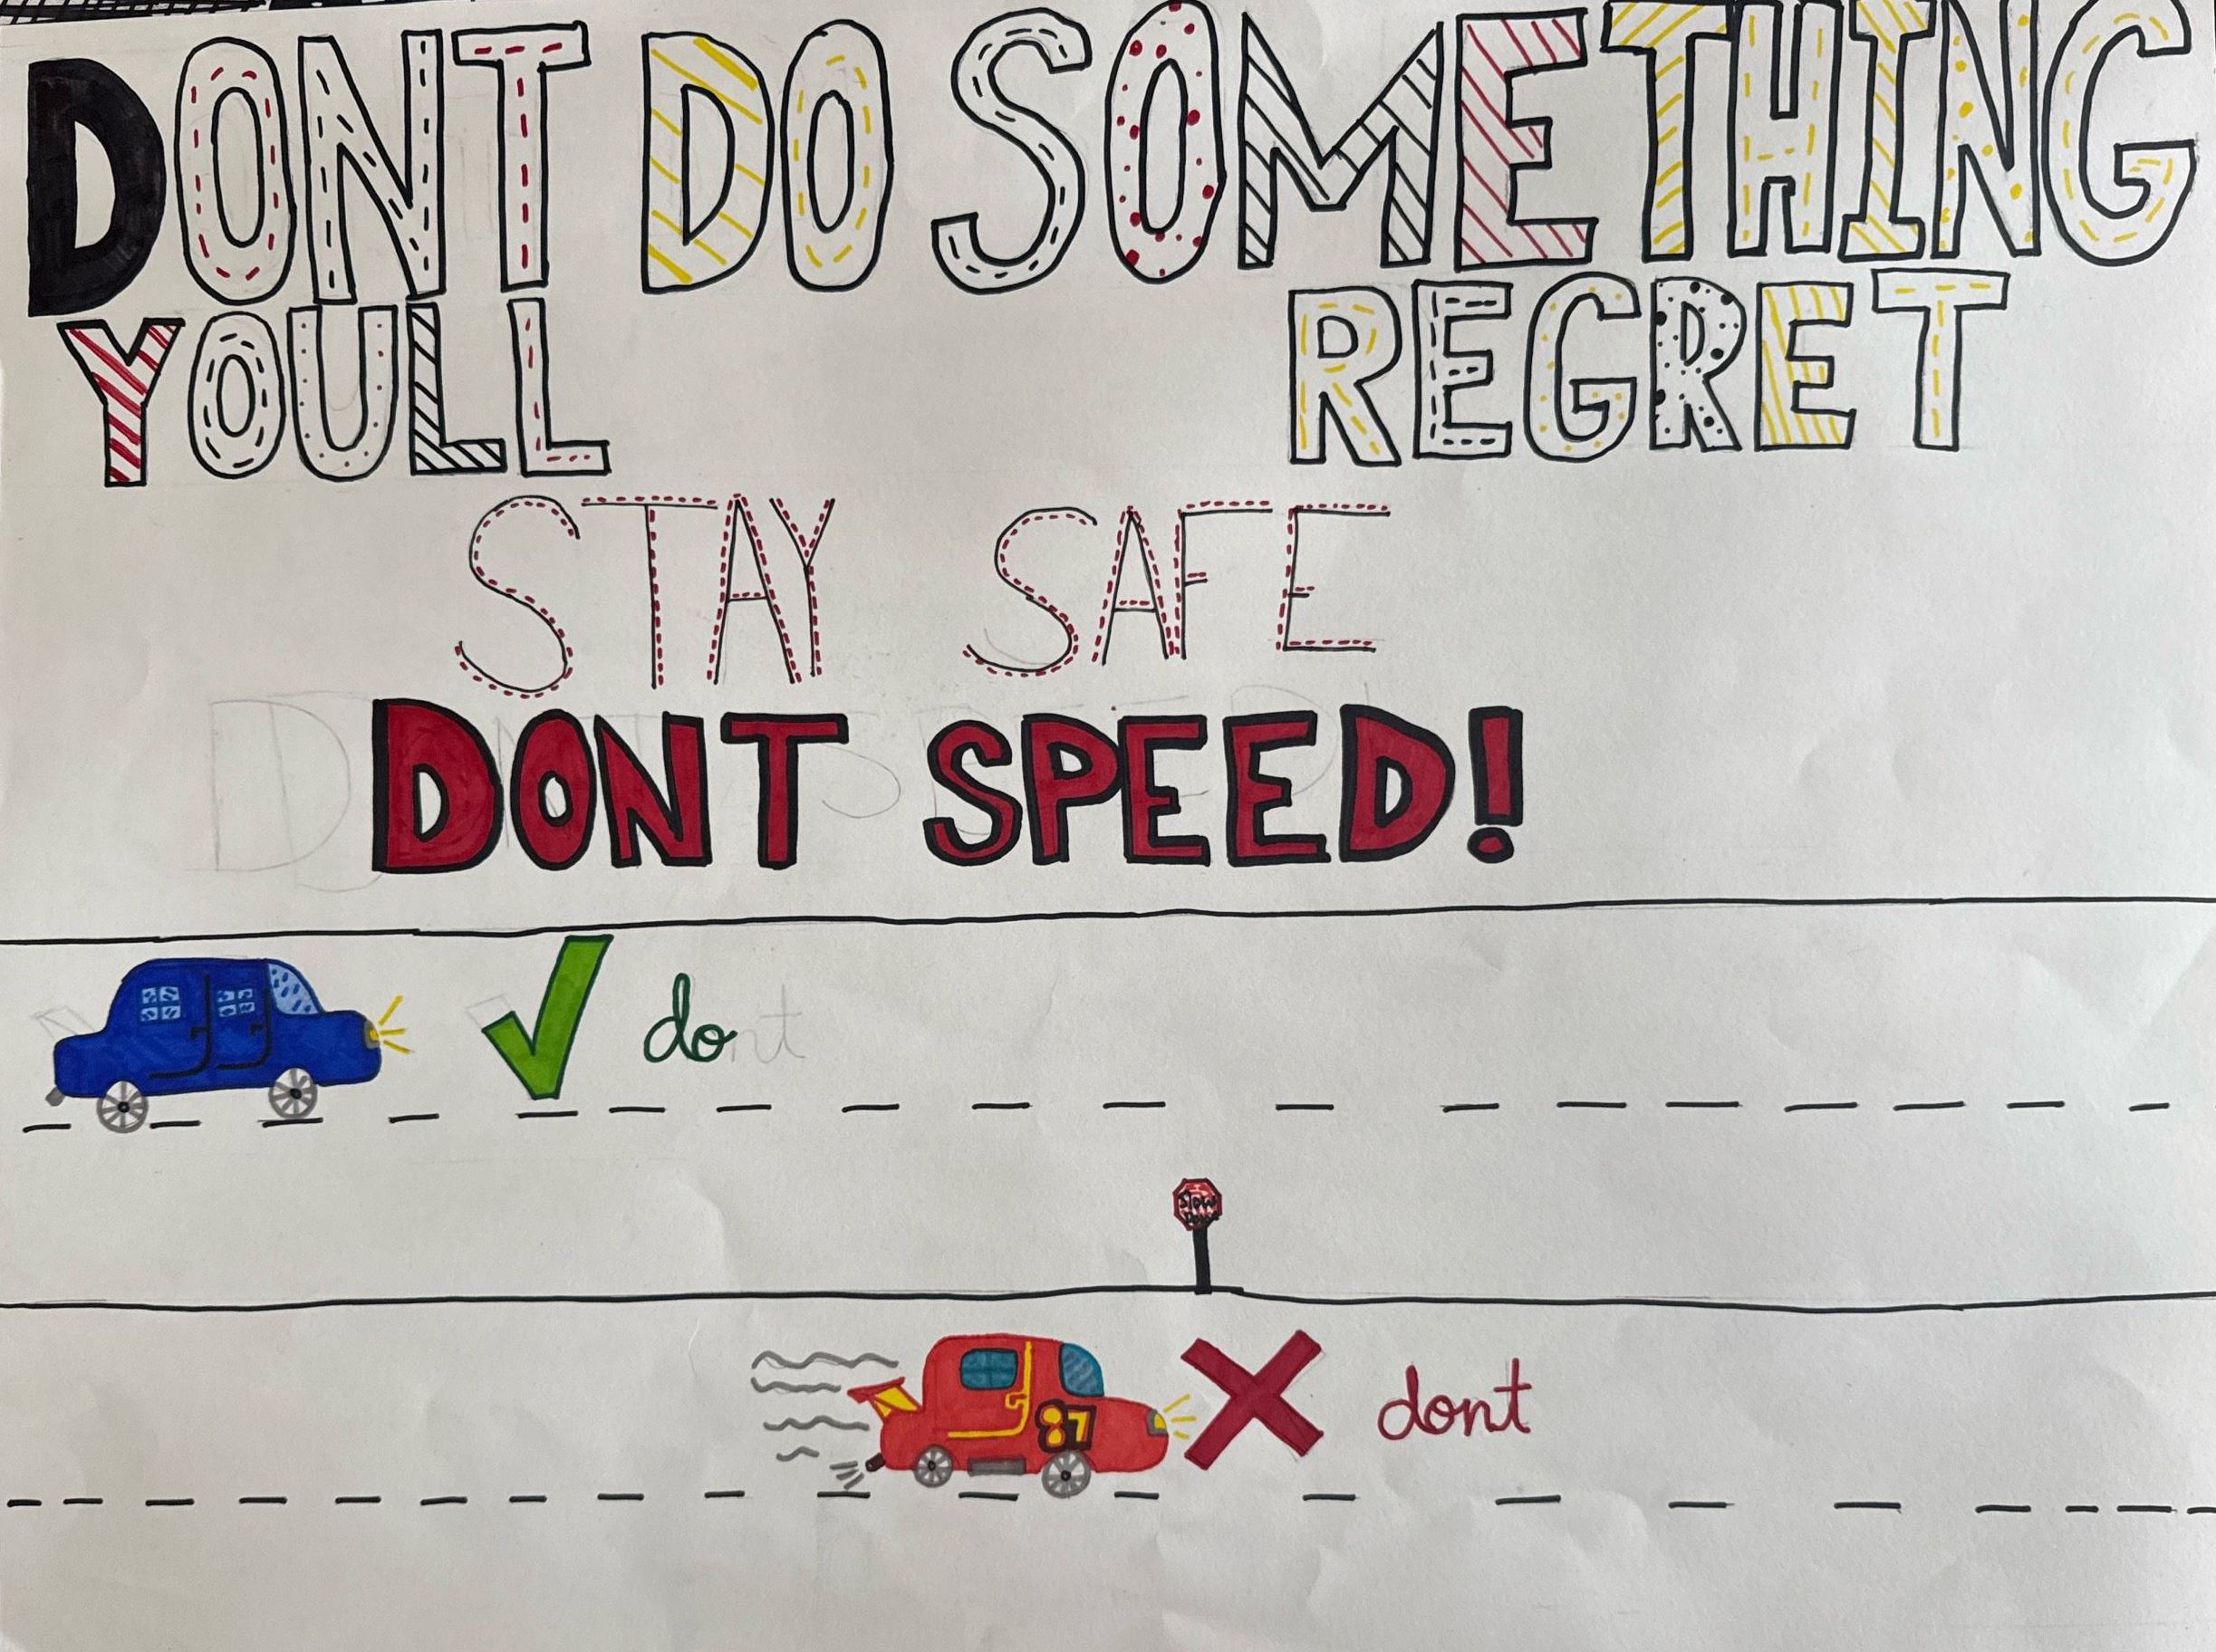 DONT DO SOMETHING
YOULL REGRET
STAY SAFE
DONT SPEED!
do
Slow
Down
87
dont